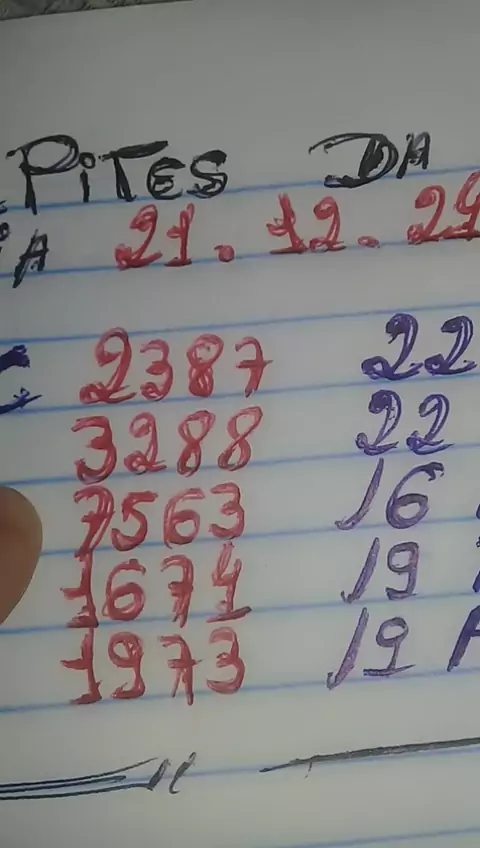 PiTES DA
iA 21.12.24
2387 22
3288 22
7563 16
1674 19
1973 19